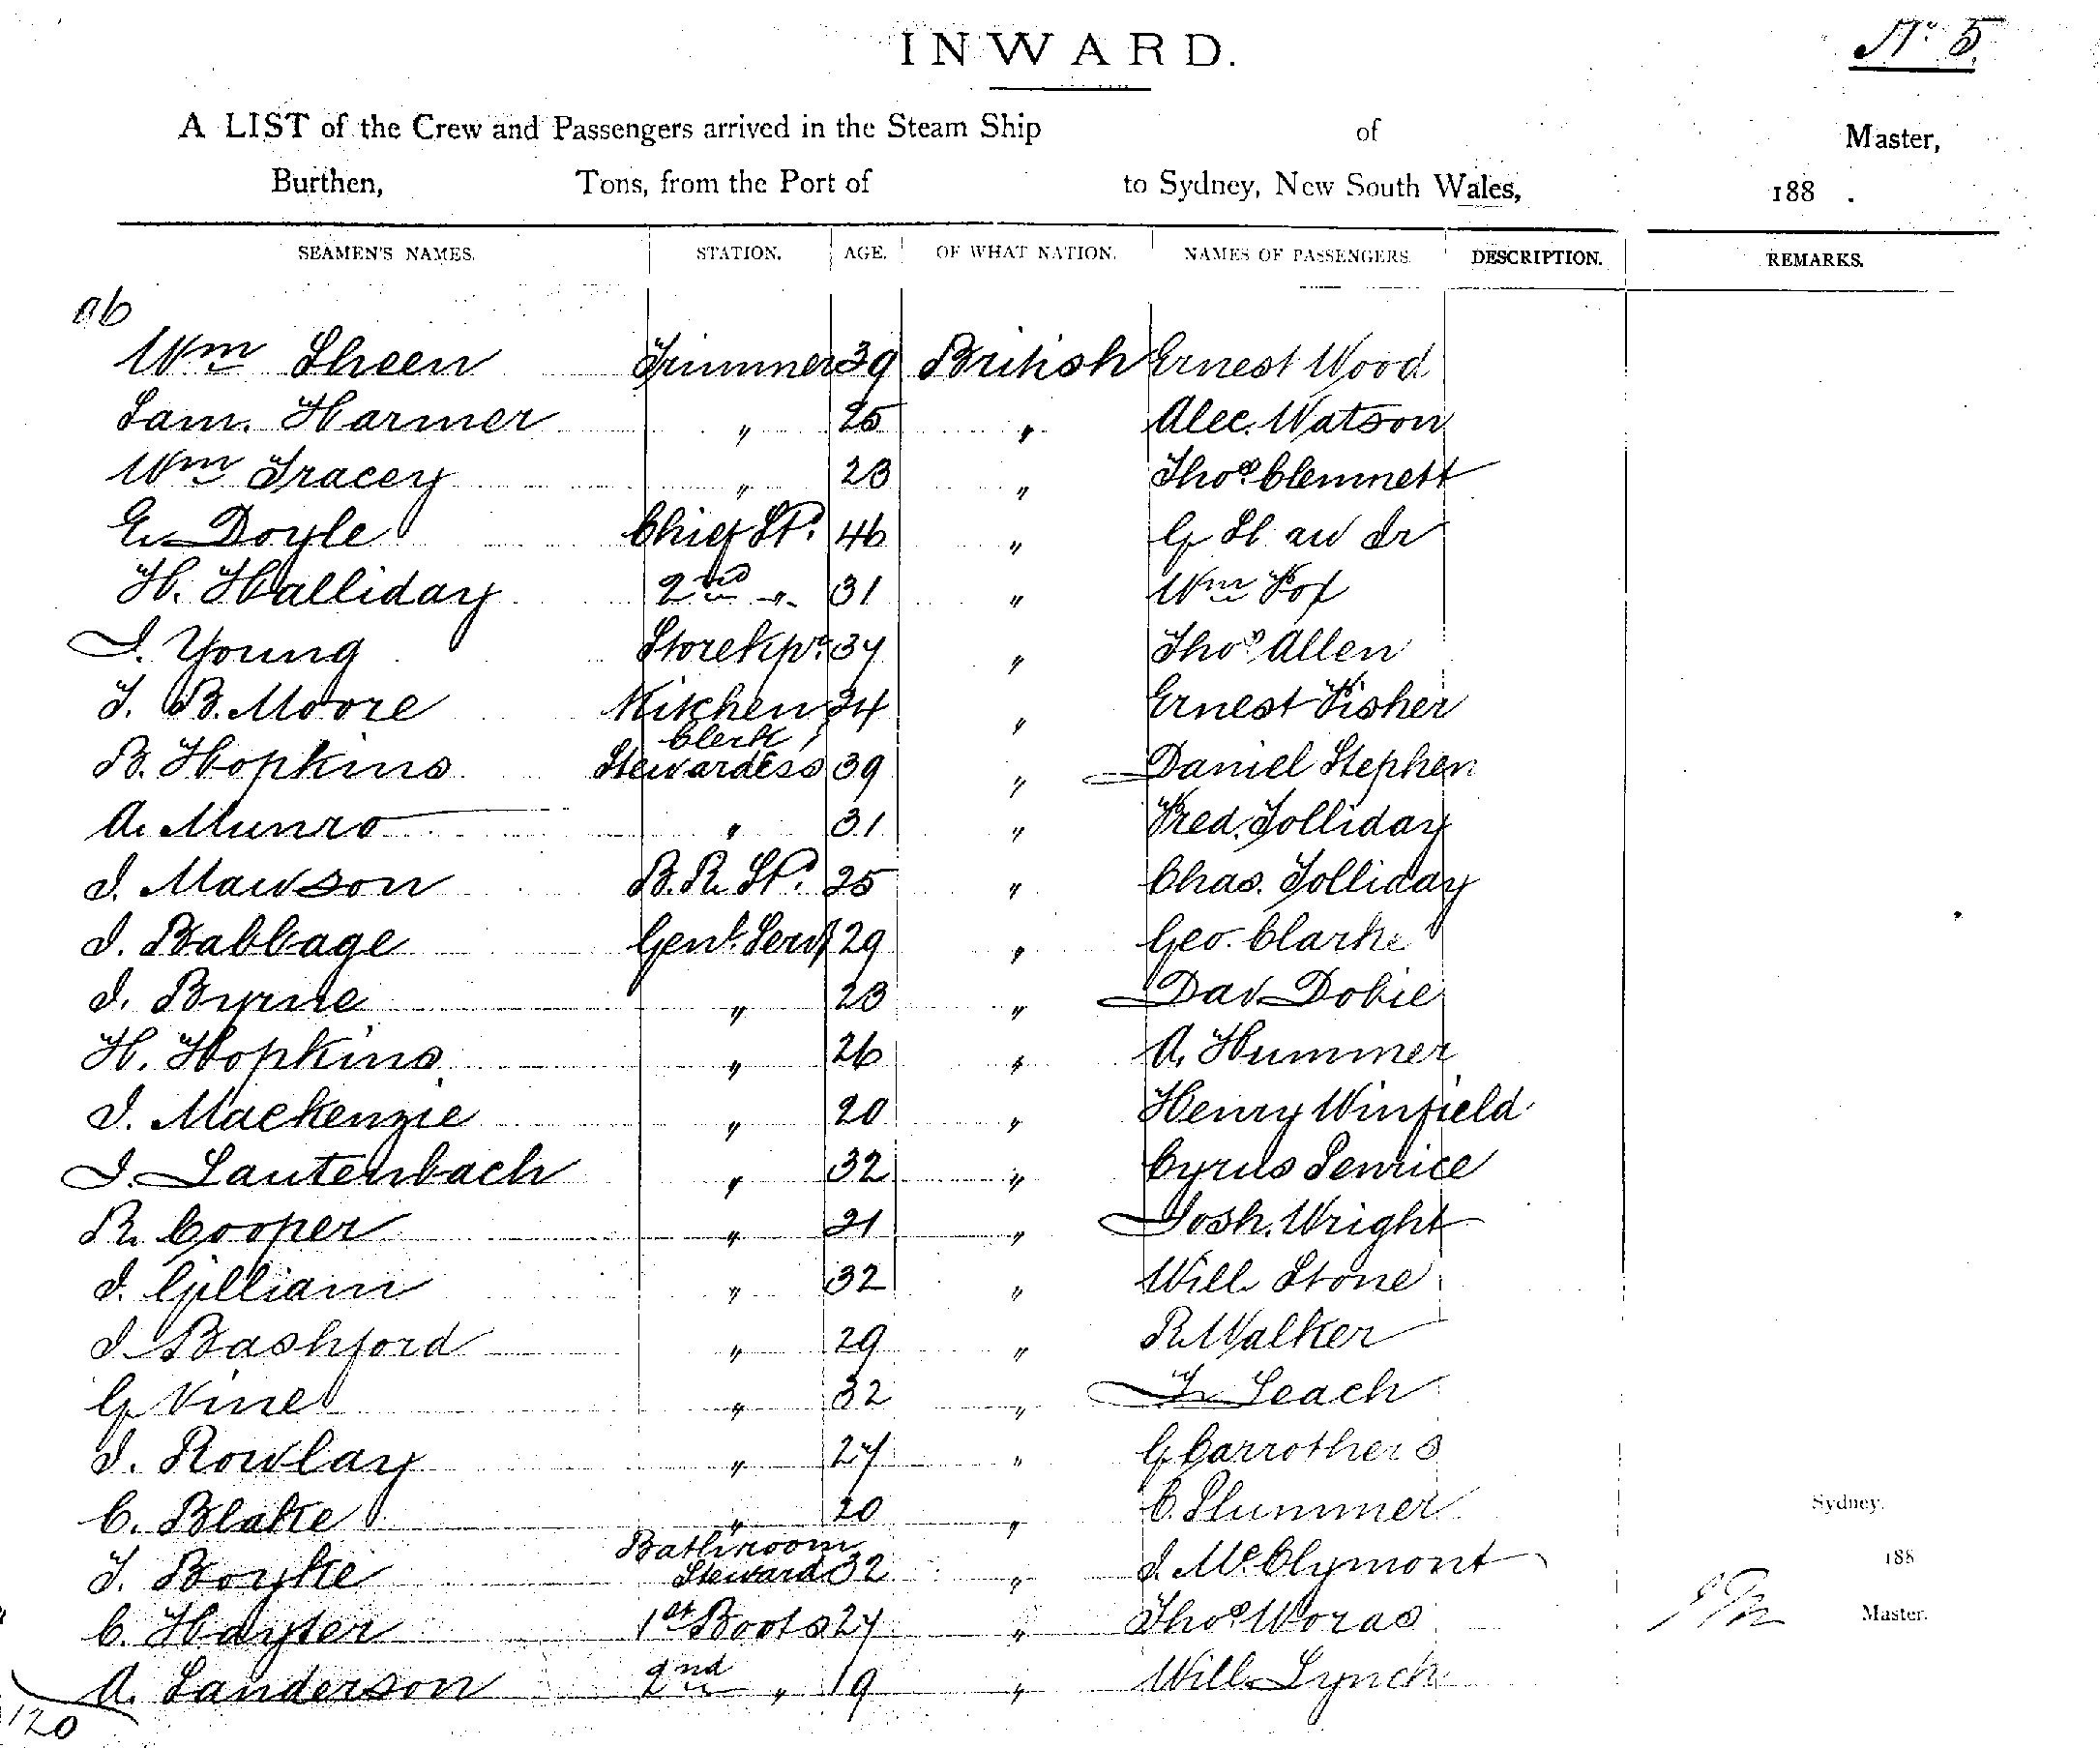 INWARD.
No. 5.
A LIST of the Crew and Passengers arrived in the Steam Ship of Master,
Burthen, Tons, from the Port of to Sydney, New South Wales, 188 .
SEAMEN'S NAMES. STATION. AGE. OF WHAT NATION. NAMES OF PASSENGERS. DESCRIPTION. REMARKS.
96
Wm Sheen Trimmer 39 British Ernest Wood
Sam. Harmer " 25 " Alec. Watson
Wm Tracey " 23 " Thos Clemmett
E. Doyle Chief St. 46 " G
H. Halliday 2nd " 31 " Wm Fox
J. Young Storekpr. 37 " Thos Allen
T. B. Moore Kitchen Clerk 34 " Ernest Fisher
B. Hopkins Stewardess 39 " Daniel Stephen
A. Munro " 31 " Fred. Tolliday
J. Mawson B.R. St. 25 " Chas. Tolliday
J. Babbage Genl. Servt 29 " Geo. Clarke
J. Byrne " 23 " Dav Dobie
H. Hopkins " 26 " A. Hummer
J. Mackenzie " 20 " Henry Winfield
J. Lautenbach " 32 " Cyrus Penrice
R. Cooper " 21 " Josh. Wright
J. Gilliam " 32 " Will Stone
J Bashford " 29 " R. Walker
G Vine " 32 " Leach
J. Rowlay " 27 " G Carrothers
C. Blake " 20 " C. Plummer
Sydney.
T. Boyke Bathroom Steward 32 " J. McClymont
188
C. Hayter 1st Boots 27 " Thos Woras
Master.
A. Sanderson 2nd " 19 " Will Lynch
120